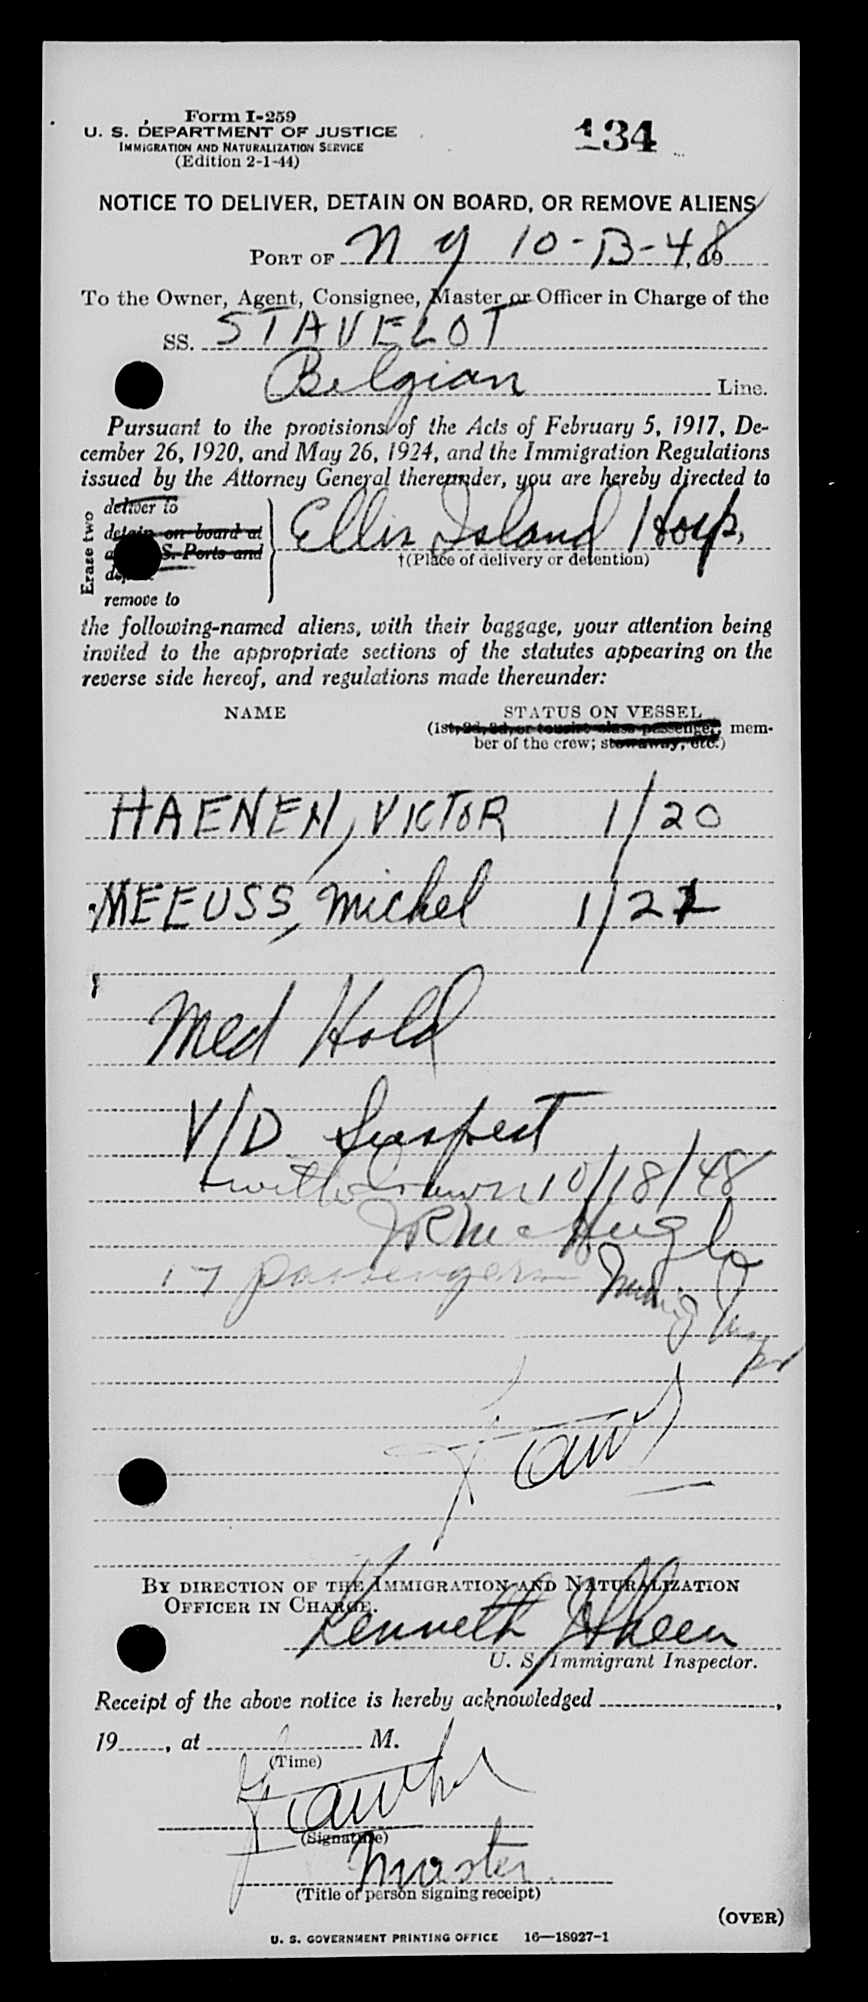 Form I-259
U. S. DEPARTMENT OF JUSTICE
IMMIGRATION AND NATURALIZATION SERVICE
(Edition 2-1-44)
134
NOTICE TO DELIVER, DETAIN ON BOARD, OR REMOVE ALIENS
PORT OF N Y 10-13-48, 19
To the Owner, Agent, Consignee, Master or Officer in Charge of the
SS. STAVELOT
Belgian Line.
Pursuant to the provisions of the Acts of February 5, 1917, De-
cember 26, 1920, and May 26, 1924, and the Immigration Regulations
issued by the Attorney General thereunder, you are hereby directed to
Erase two
deliver to
detain on board at
S. Ports and
remove to
Ellis Island Hosp.
†(Place of delivery or detention)
the following-named aliens, with their baggage, your attention being
invited to the appropriate sections of the statutes appearing on the
reverse side hereof, and regulations made thereunder:
NAME STATUS ON VESSEL
(1st, 2d, 3d, or tourist class passenger; mem-
ber of the crew; stowaway, etc.)
HAENEN, VICTOR 1/20
MEEUSS, Michel 1/21
Med Hold
V/D Suspect
withdrawn 10/18/48
JR McHugh
17 passengers Immig Inspr
BY DIRECTION OF THE IMMIGRATION AND NATURALIZATION
OFFICER IN CHARGE.
Kenneth J Sheen
U. S. Immigrant Inspector.
Receipt of the above notice is hereby acknowledged ,
19 , at M.
(Time)
(Signature)
Master
(Title of person signing receipt)
(OVER)
U. S. GOVERNMENT PRINTING OFFICE 16—18927-1